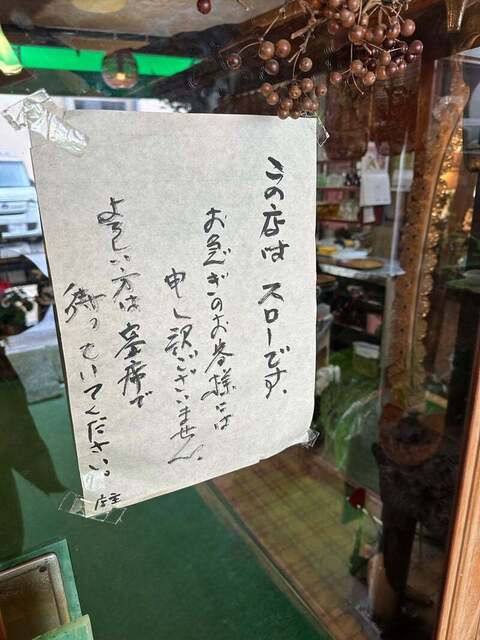 この店は スローです.
お急ぎのお客様には
申し訳ございません.
よろしい方は客席で
待っていてください。
店主